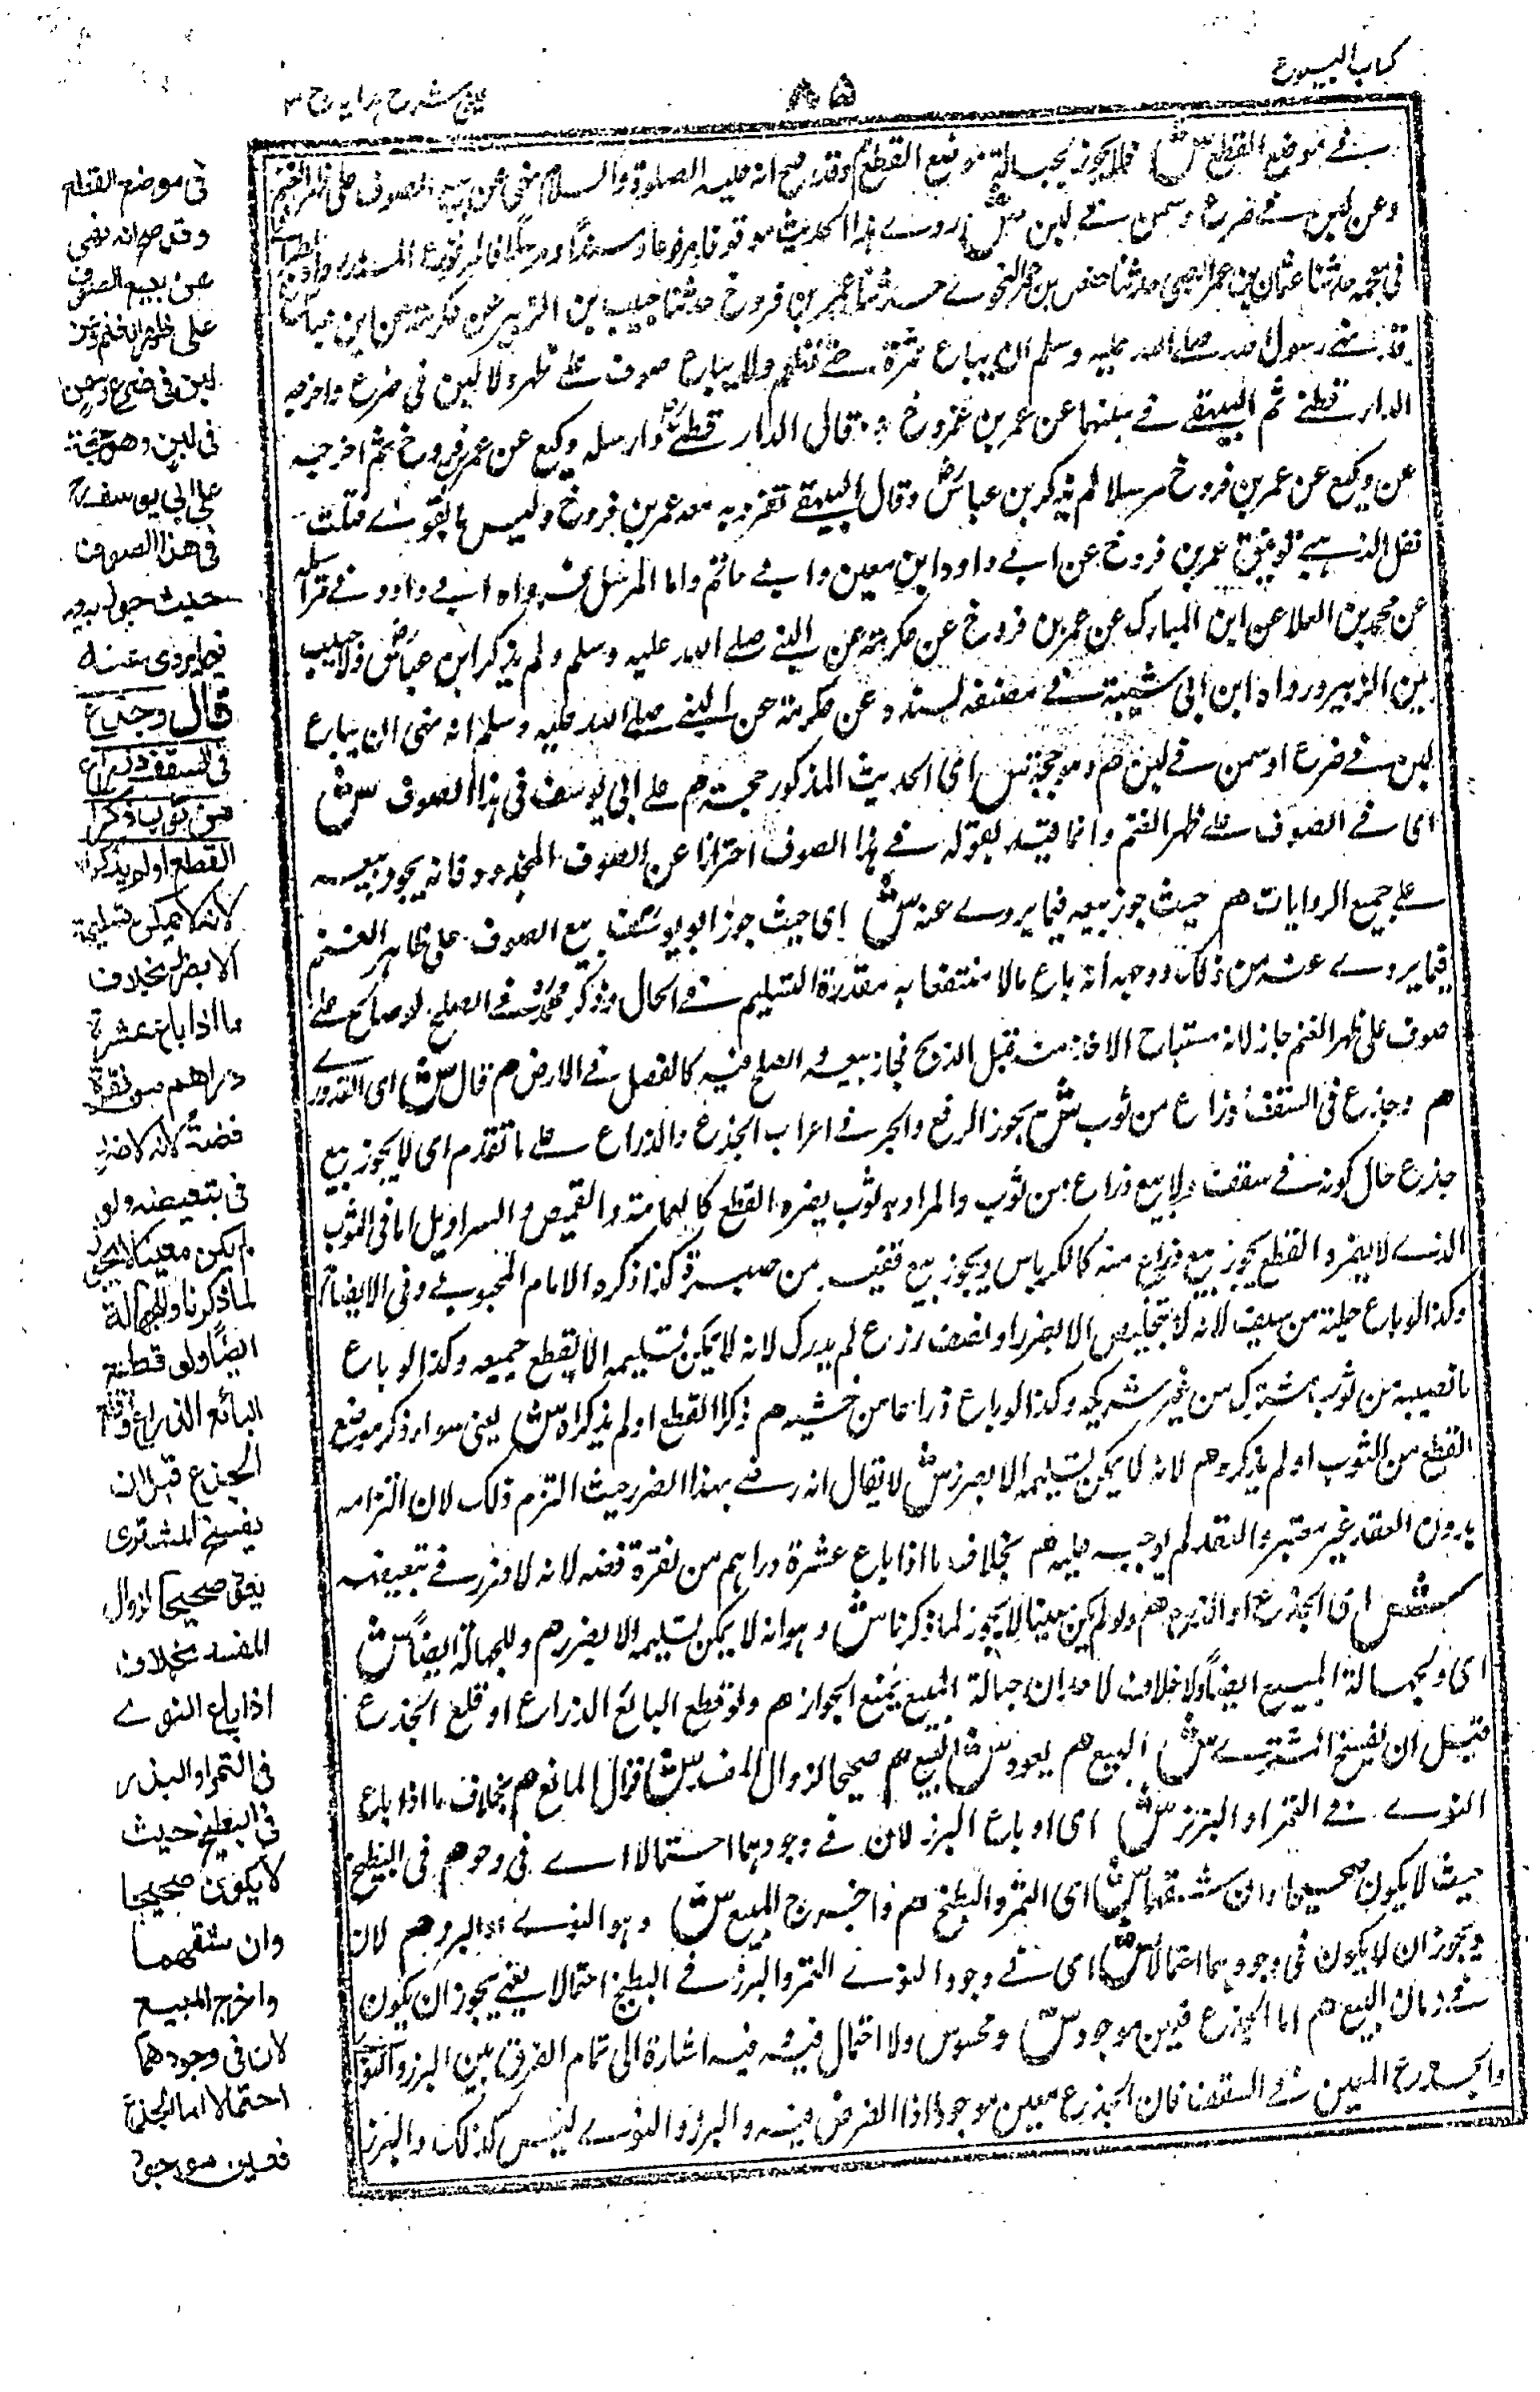 كتاب البيوع
٨٥
عيني شرح هدايه ج ٣
في موضع القطع ش فلا يجوز لجهالة موضع القطع م وقد صح انه عليه الصلوة والسلام نهى عن بيع الصوف على ظهر الغنم
وعن لبن في ضرع وسمن في لبن ش روى هذا الحديث موقوفا مرفوعا ومسندا ومرسلا فالمرفوع المسند رواه
في معجمه حدثنا عثمان بن عمر الضبي حدثنا حفص بن عمر الحوضي حدثنا عمر بن فروخ حدثنا حبيب بن الزبير عن عكرمة عن ابن عباس
قال نهى رسول الله صلى الله عليه وسلم ان يباع ثمرة حتى تطعم ولا يباع صوف على ظهر ولا لبن في ضرع واخرجه
الدار قطني ثم البيهقي في سننهما عن عمر بن فروخ قال الدار قطني وارسله وكيع عن عمر بن فروخ ثم اخرجه
عن وكيع عن عمر بن فروخ مرسلا لم يذكر بن عباس وقال البيهقي تفرد به عمر بن فروخ وليس بالقوي قلت
نقل الذهبي توثيق عمر بن فروخ عن ابي داود وابن معين وابي حاتم واما المرسل فرواه ابي داود في مراسيله
عن محمد بن العلا عن ابن المبارك عن عمر بن فروخ عن عكرمة عن النبي صلى الله عليه وسلم ولم يذكر ابن عباس ولا حبيب
بن الزبير ورواه ابن ابي شيبة في مصنفه بسنده عن عكرمة عن النبي صلى الله عليه وسلم انه نهى ان يباع
لبن في ضرع او سمن في لبن م وهو حجة ش اى الحديث المذكور حجة م على ابي يوسف في هذا الصوف ش
اى في الصوف على ظهر الغنم وانما قيد بقوله في هذا الصوف احترازا عن الصوف المجذوذ فانه يجوز بيعه
على جميع الروايات م حيث جوز بيعه فيما يروى عنه ش اى حيث جوز ابو يوسف بيع الصوف على ظاهر الغنم
فيما يروى عنه من ذلك ووجهه انه باع مالا منتفعا به مقدرة التسليم في الحال وذكر محمد في الصلح لو صالح على
صوف على ظهر الغنم جاز لانه مستباح الاخذ منه قبل الذبح فجاز بيعه والصلح فيه كالفصل في الارض م قال ش اى القدورى
م وجذع في السقف وذراع من ثوب ش يجوز الرفع والجر في اعراب الجذع والذراع على ما تقدم اى لا يجوز بيع
جذع حال كونه في سقف ولا بيع ذراع من ثوب والمراد به ثوب يضره القطع كالعمامة والقميص والسراويل اما في الثوب
الذى لا يضره القطع يجوز بيع ذراع منه كالكرباس ويجوز بيع قفيز من صبرة كذا ذكره الامام المحبوبي وفي الايضاح
وكذا لو باع حلية من سيف لانه لا يتخلص الا بضرر او نصف زرع لم يدرك لانه لا يمكن تسليمه الا بقطع جميعه وكذا لو باع
ما نصيبه من ثوب مشترك من غير شريكه وكذا لو باع ذراعا من خشبة م ذكرا القطع او لم يذكراه ش يعني سواء ذكر موضع
القطع من الثوب او لم يذكره م لانه لا يمكن تسليمه الا بضرر ش لا يقال انه رضي بهذا الضرر حيث التزم ذلك لان التزامه
بدون العقد غير معتبر والعقد لم يوجبه عليه م بخلاف ما اذا باع عشرة دراهم من نقرة فضة لانه لا ضرر في تبعيضه
ش اى الجذع او الذراع م ولو لم يكن معينا لا يجوز لما ذكرنا ش وهو انه لا يمكن تسليمه الا بضرر م وللجهالة ايضا ش
اى ولجهالة المبيع ايضا ولا خلاف لاحد ان جهالة المبيع يمنع الجواز م ولو قطع البائع الذراع او قلع الجذع
قبل ان يفسخ المشترى ش البيع م يعود ش البيع م صحيحا لزوال المفسد ش فزال المانع م بخلاف ما اذا باع
النوى في التمر او البزر ش اى او باع البزر لان في وجودهما احتمالا اى في وجوهم في البطيخ
حيث لا يكون صحيحا وان شقهما ش اى التمر والبطيخ م واخرج المبيع ش وهو النوى او البزر م لان
ويجوز ان لا يكون في وجودهما احتمالا ش اى في وجود النوى التمر والبزر في البطيخ احتمالا يعني يجوز ان يكون
البيع م اما الجذع فعين موجود ش ومحسوس ولا احتمال فيه وفيه اشارة الى تمام الفرق بين البزر والنوى
والجذع المعين في السقف فان الجذع معين موجود اذا الفرض فيه والبزر والنوى ليس كذلك والبزر
في موضع القطع
وقد صح انه نهى
عن بيع الصوف
على ظهر الغنم وعن
لبن في ضرع وسمن
في لبن وهو حجة
على ابي يوسف رح
في هذا الصوف
حيث جوز بيعه
فيما يروى عنه
قال وجذع
في السقف وذراع
من ثوب ذكرا
القطع او لم يذكراه
لانه لا يمكن تسليمه
الا بضرر بخلاف
ما اذا باع عشرة
دراهم من نقرة
فضة لانه لا ضرر
في تبعيضه ولو
لم يكن معينا لا يجوز
لما ذكرنا وللجهالة
ايضا ولو قطع
البائع الذراع او قلع
الجذع قبل ان
يفسخ المشترى
يعود صحيحا لزوال
المفسد بخلاف
اذا باع النوى
في التمر او البذر
في البطيخ حيث
لا يكون صحيحا
وان شقهما
واخرج المبيع
لان في وجودهما
احتمالا اما الجذع
فعين موجود